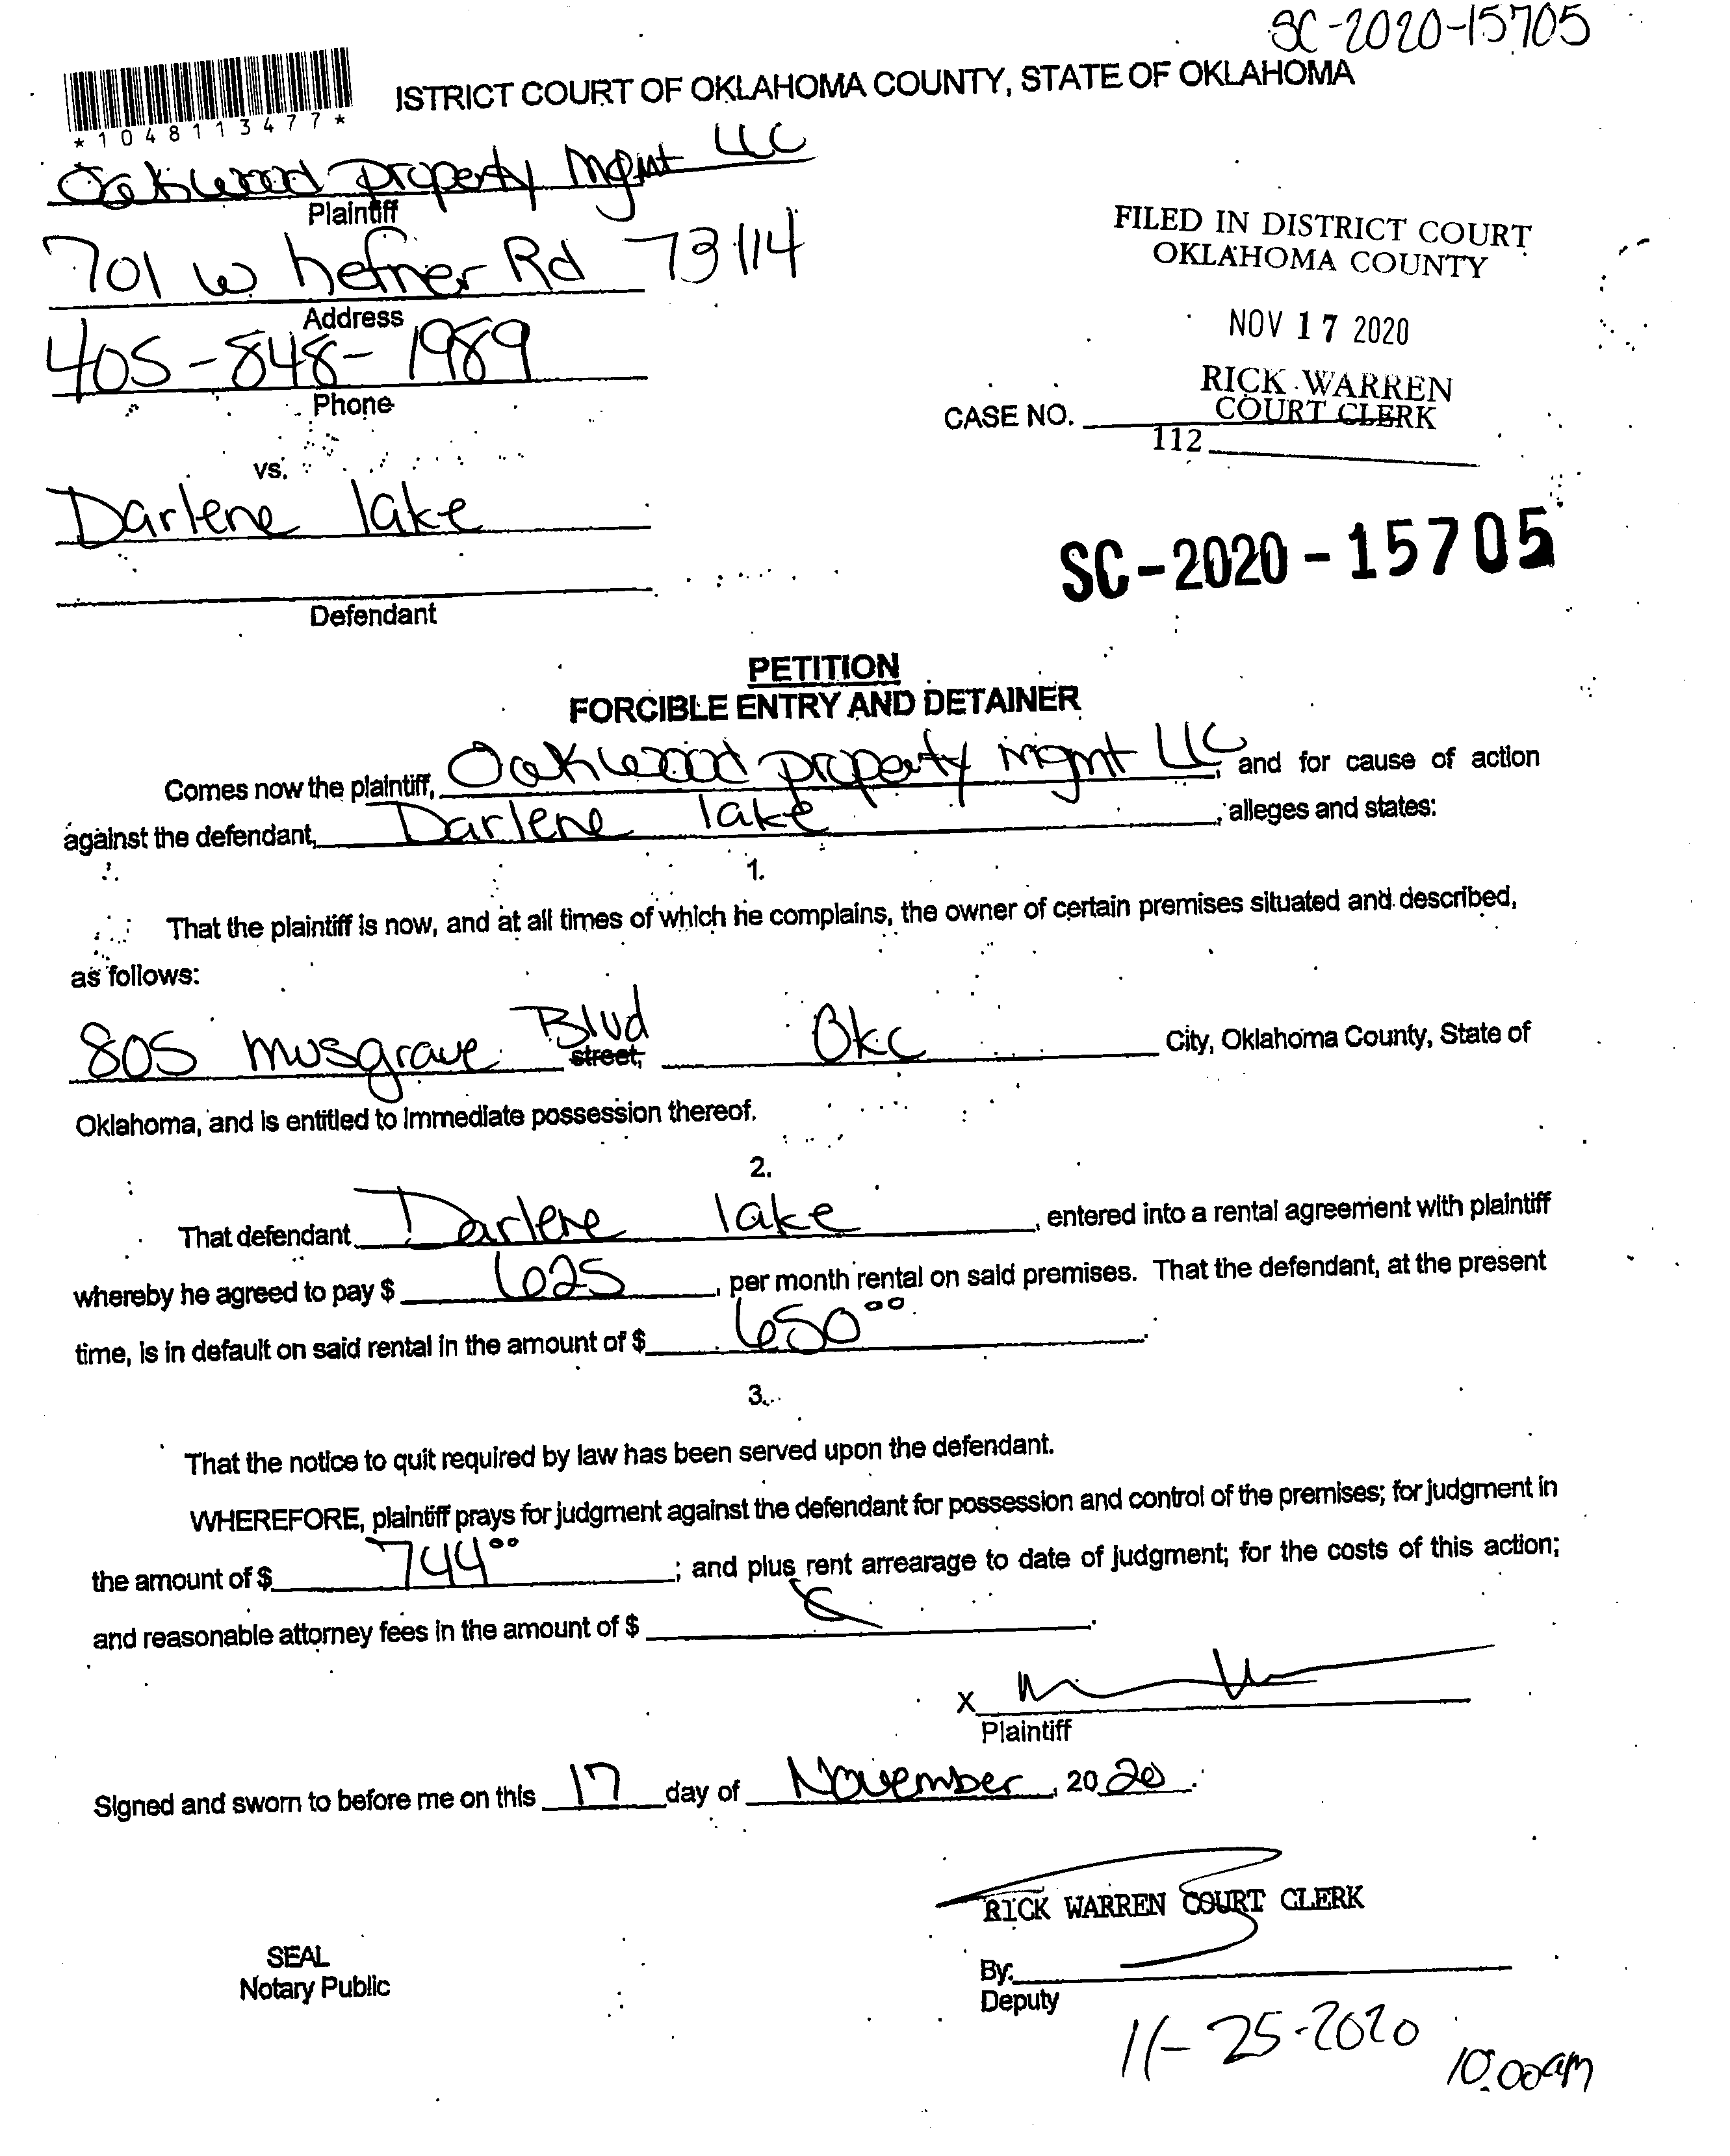 SC-2020-15705
ISTRICT COURT OF OKLAHOMA COUNTY, STATE OF OKLAHOMA
*1048113477*
Oakwood property mgmt LLC
Plaintiff
701 w hefner Rd 73114
Address
405-848-1989
Phone
FILED IN DISTRICT COURT
OKLAHOMA COUNTY
NOV 17 2020
RICK WARREN
COURT CLERK
CASE NO.
112
vs.
Darlene lake
Defendant
SC-2020-15705
PETITION
FORCIBLE ENTRY AND DETAINER
Comes now the plaintiff, Oakwood property mgmt LLC, and for cause of action
against the defendant, Darlene lake, alleges and states:
1.
That the plaintiff is now, and at all times of which he complains, the owner of certain premises situated and described,
as follows:
805 musgrave Blvd street, Okc City, Oklahoma County, State of
Oklahoma, and is entitled to immediate possession thereof.
2.
That defendant Darlene lake, entered into a rental agreement with plaintiff
whereby he agreed to pay $ 625, per month rental on said premises. That the defendant, at the present
time, is in default on said rental in the amount of $ 650.00.
3.
That the notice to quit required by law has been served upon the defendant.
WHEREFORE, plaintiff prays for judgment against the defendant for possession and control of the premises; for judgment in
the amount of $ 744.00; and plus rent arrearage to date of judgment; for the costs of this action;
and reasonable attorney fees in the amount of $.
X
Plaintiff
Signed and sworn to before me on this 17 day of November, 2020.
RICK WARREN COURT CLERK
SEAL
Notary Public
By:
Deputy
11-25-2020
10:00am